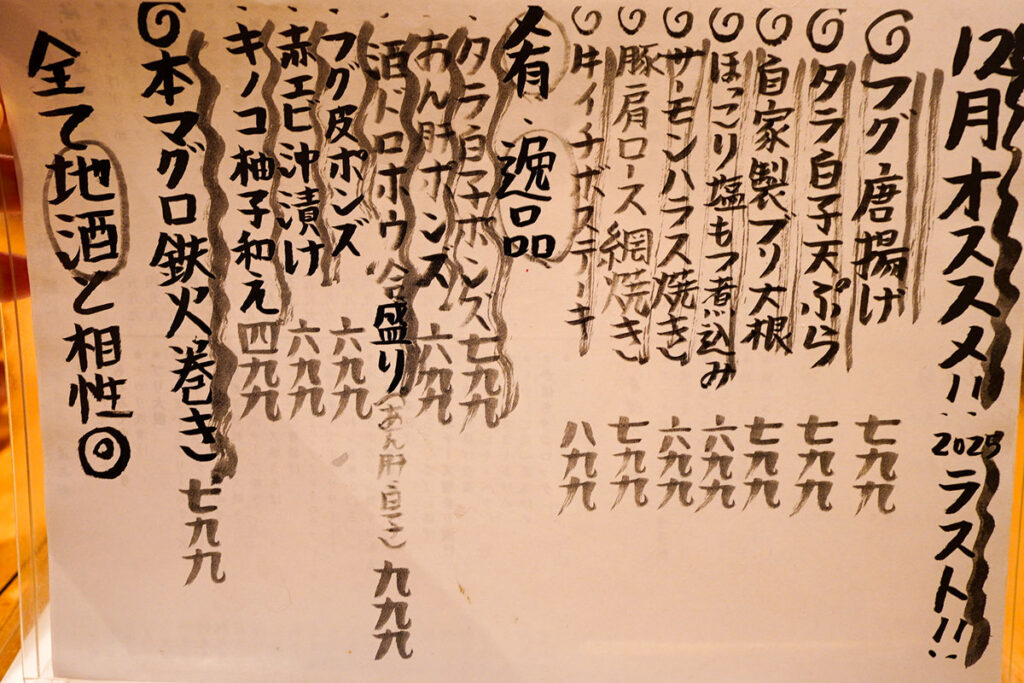 12月オススメ!! 2025ラスト!!
フグ唐揚げ 七九九
タラ白子天ぷら 七九九
自家製ブリ大根 七九九
ほっこり塩もつ煮込み 六九九
サーモンハラス焼き 六九九
豚肩ロース網焼き 七九九
牛イチボステーキ 八九九
肴・逸品
・タラ白子ポンズ 七九九
・あん肝ポンズ 六九九
・酒ドロボウ合盛り(あん肝白子) 九九九
・フグ皮ポンズ 六九九
・赤エビ沖漬け 六九九
・キノコ柚子和え 四九九
本マグロ鉄火巻き 七九九
全て地酒と相性◎